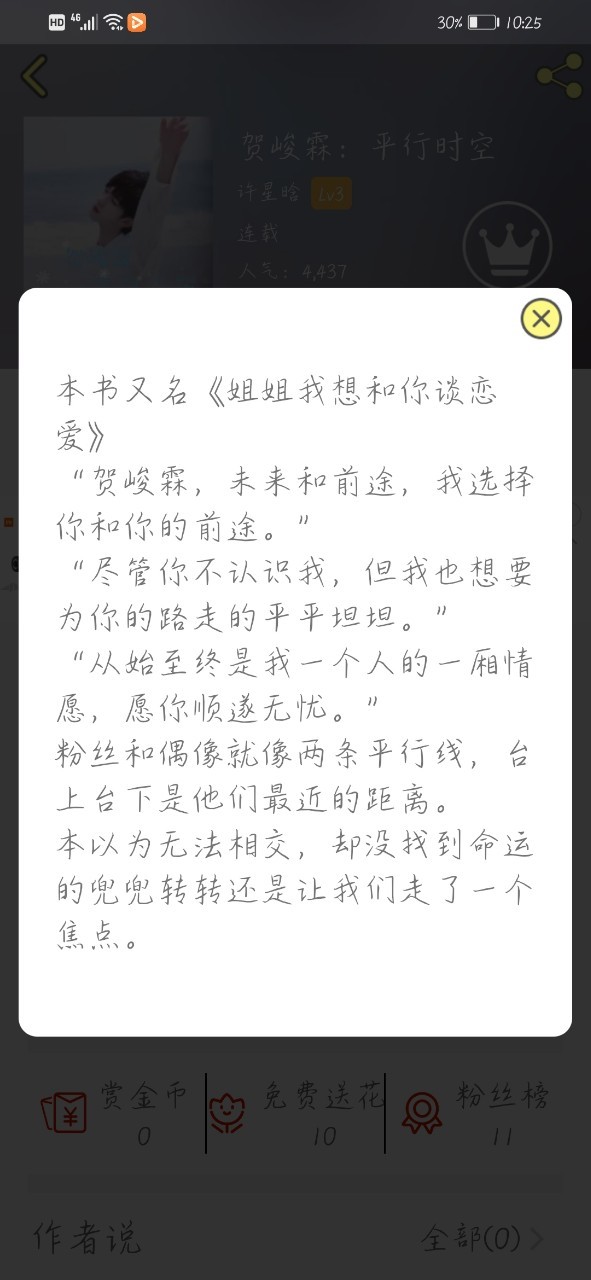 HD 4G 30% 10:25
贺峻霖：平行时空
许星晗 Lv3
连载
人气：4,437
本书又名《姐姐我想和你谈恋
爱》
“贺峻霖，未来和前途，我选择
你和你的前途。”
“尽管你不认识我，但我也想要
为你的路走的平平坦坦。”
“从始至终是我一个人的一厢情
愿，愿你顺遂无忧。”
粉丝和偶像就像两条平行线，台
上台下是他们最近的距离。
本以为无法相交，却没找到命运
的兜兜转转还是让我们走了一个
焦点。
赏金币 免费送花 粉丝榜
0 10 11
作者说 全部(0)